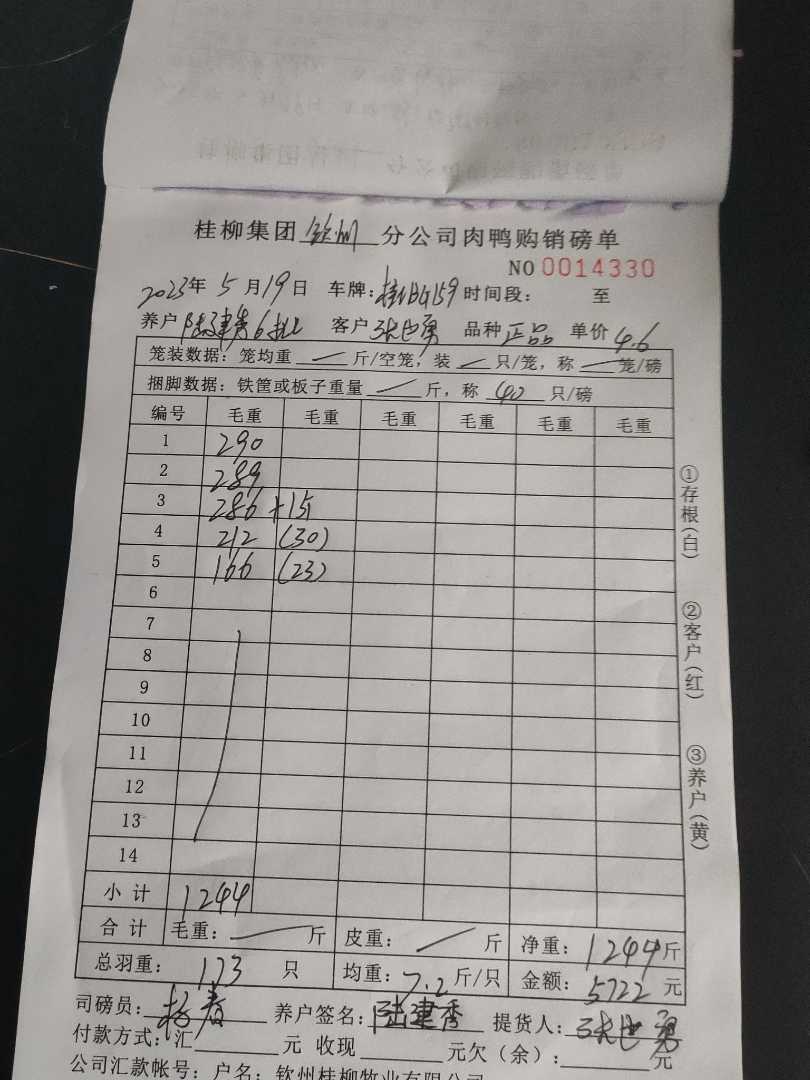 桂柳集团 钦州 分公司肉鸭购销磅单
NO 0014330
2023年 5 月 19 日 车牌: 时间段: 至
养户 陆建秀6批 客户 张世勇 品种 正品 单价 4.6
笼装数据: 笼均重 斤/空笼, 装 只/笼, 称 笼/磅
捆脚数据: 铁筐或板子重量 斤, 称 40 只/磅
编号 毛重 毛重 毛重 毛重 毛重 毛重
1 290
2 289
3 286 +1
4 212 (30)
5 166 (23)
6
7
8
9
10
11
12
13
14
小计 1244
合计 毛重: 斤 皮重: 斤 净重: 1244斤
总羽重: 173 只 均重: 7.2 斤/只 金额: 5722 元
司磅员: 杨春 养户签名: 陆建秀 提货人: 张世勇
付款方式: 汇 元 收现 元欠(余): 元
公司汇款帐号: 户名: 钦州桂柳牧业有限公司
①存根(白)
②客户(红)
③养户(黄)